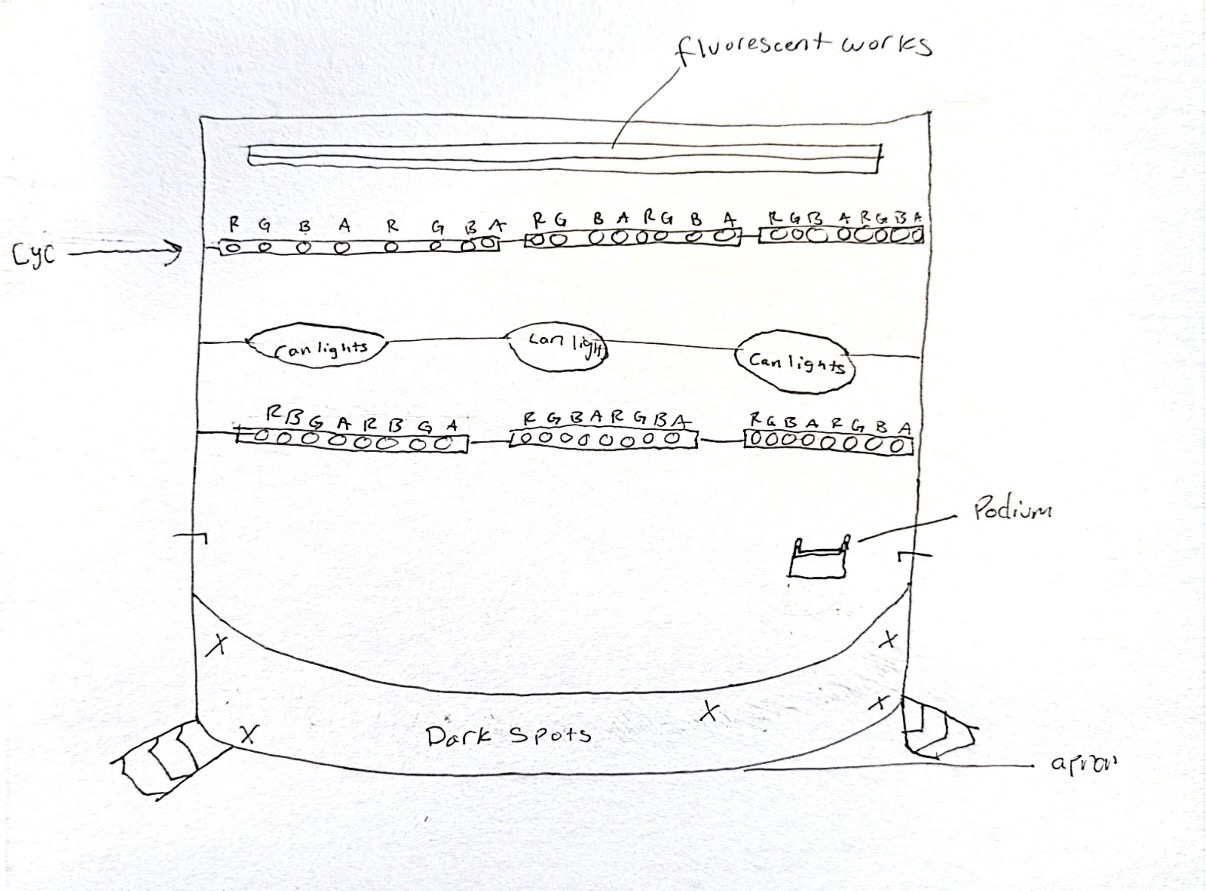 fluorescent works
R G B A R G B A R G B A R G B A R G B A R G B A
Cyc
Can lights Can light Can lights
R B G A R B G A R G B A R G B A R G B A R G B A
Podium
X X
X X
X Dark Spots
apron